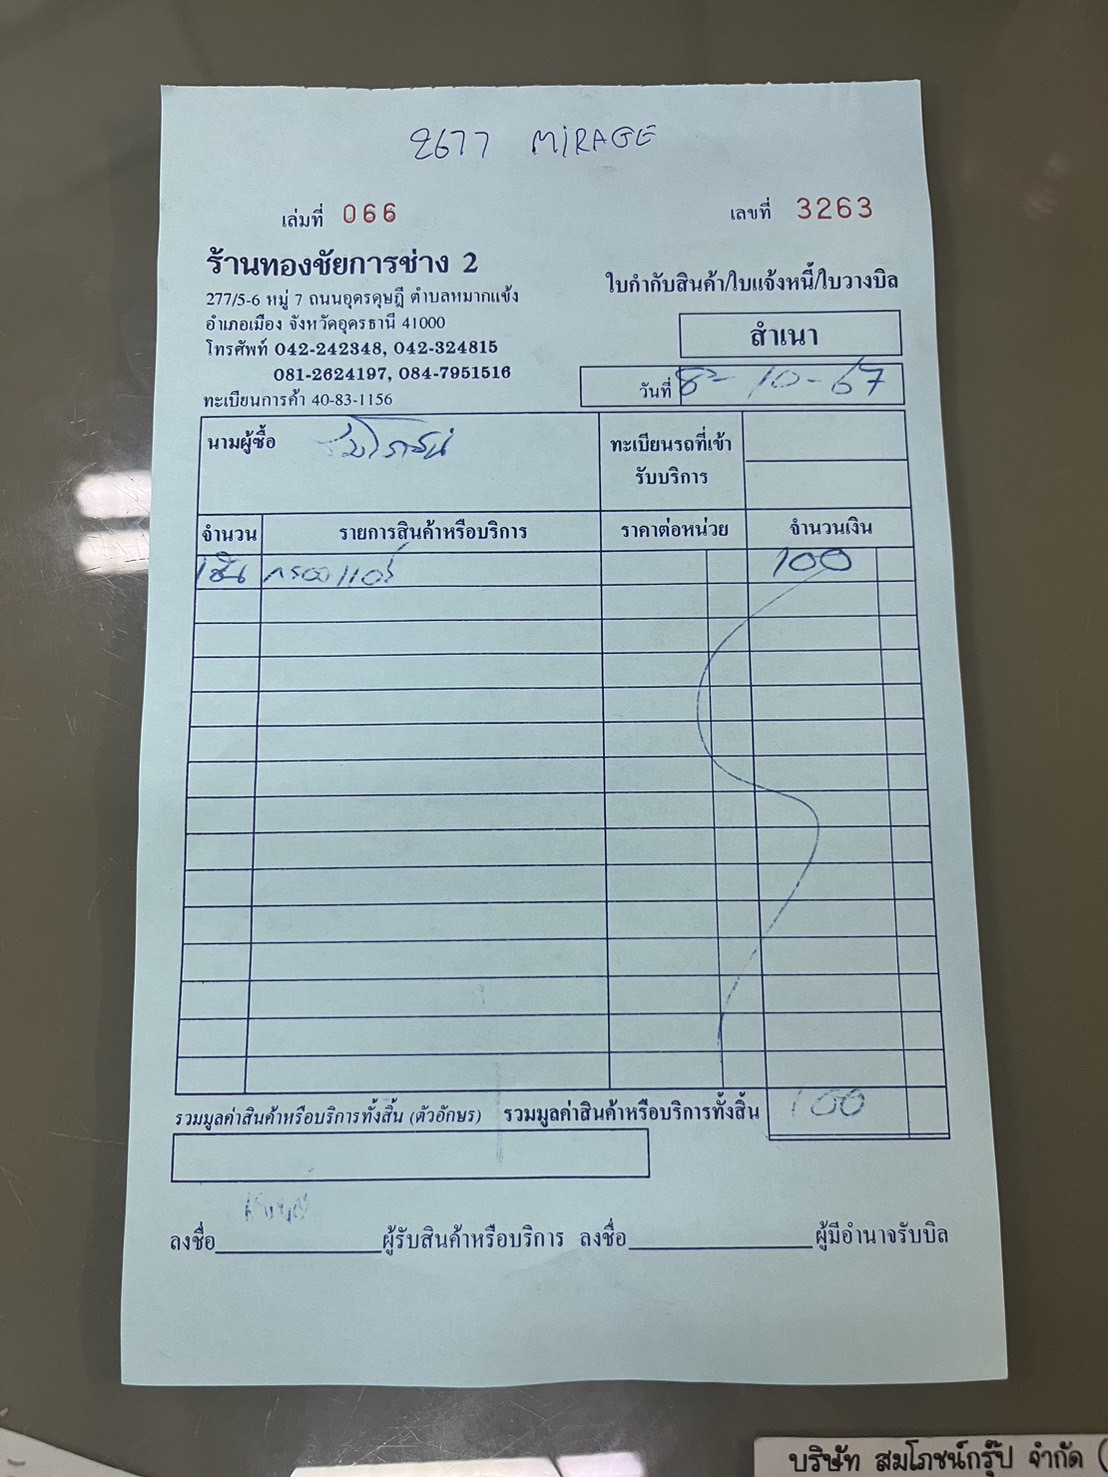 2677 MIRAGE
เล่มที่ 066
เลขที่ 3263
ร้านทองชัยการช่าง 2
277/5-6 หมู่ 7 ถนนอุดรดุษฎี ตำบลหมากแข้ง
อำเภอเมือง จังหวัดอุดรธานี 41000
โทรศัพท์ 042-242348, 042-324815
081-2624197, 084-7951516
ทะเบียนการค้า 40-83-1156
ใบกำกับสินค้า/ใบแจ้งหนี้/ใบวางบิล
สำเนา
วันที่ 8-10-67
นามผู้ซื้อ สมโภชน์
ทะเบียนรถที่เข้า
รับบริการ
จำนวน รายการสินค้าหรือบริการ ราคาต่อหน่วย จำนวนเงิน
กรองแอร์ 100
รวมมูลค่าสินค้าหรือบริการทั้งสิ้น (ตัวอักษร) รวมมูลค่าสินค้าหรือบริการทั้งสิ้น 100
ลงชื่อ ผู้รับสินค้าหรือบริการ ลงชื่อ ผู้มีอำนาจรับบิล
บริษัท สมโภชน์กรุ๊ป จำกัด (